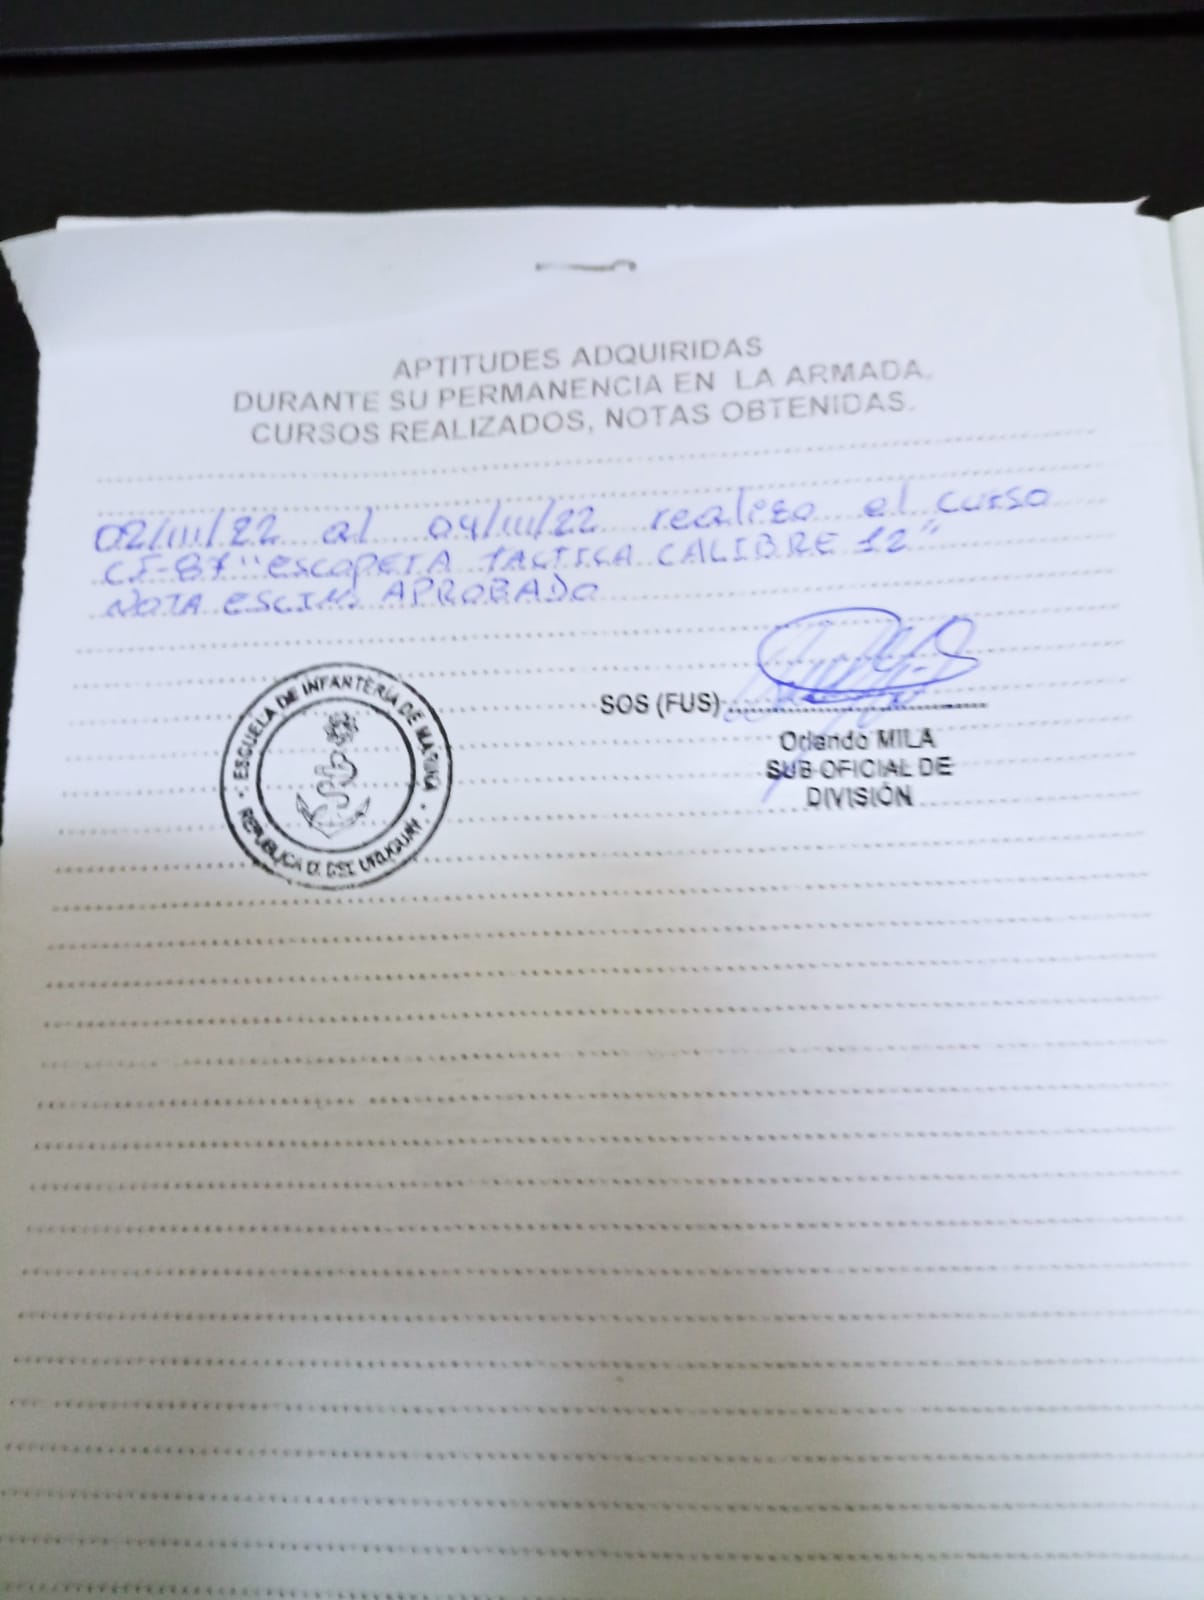 APTITUDES ADQUIRIDAS
DURANTE SU PERMANENCIA EN LA ARMADA.
CURSOS REALIZADOS, NOTAS OBTENIDAS.
02/III/22 al 04/III/22 realizo el curso
CI-87 "ESCOPETA TACTICA CALIBRE 12"
NOTA ESCIM APROBADO
ESCUELA DE INFANTERÍA DE MARINA
REPUBLICA O. DEL URUGUAY
SOS (FUS)
Orlando MILA
SUB OFICIAL DE
DIVISIÓN